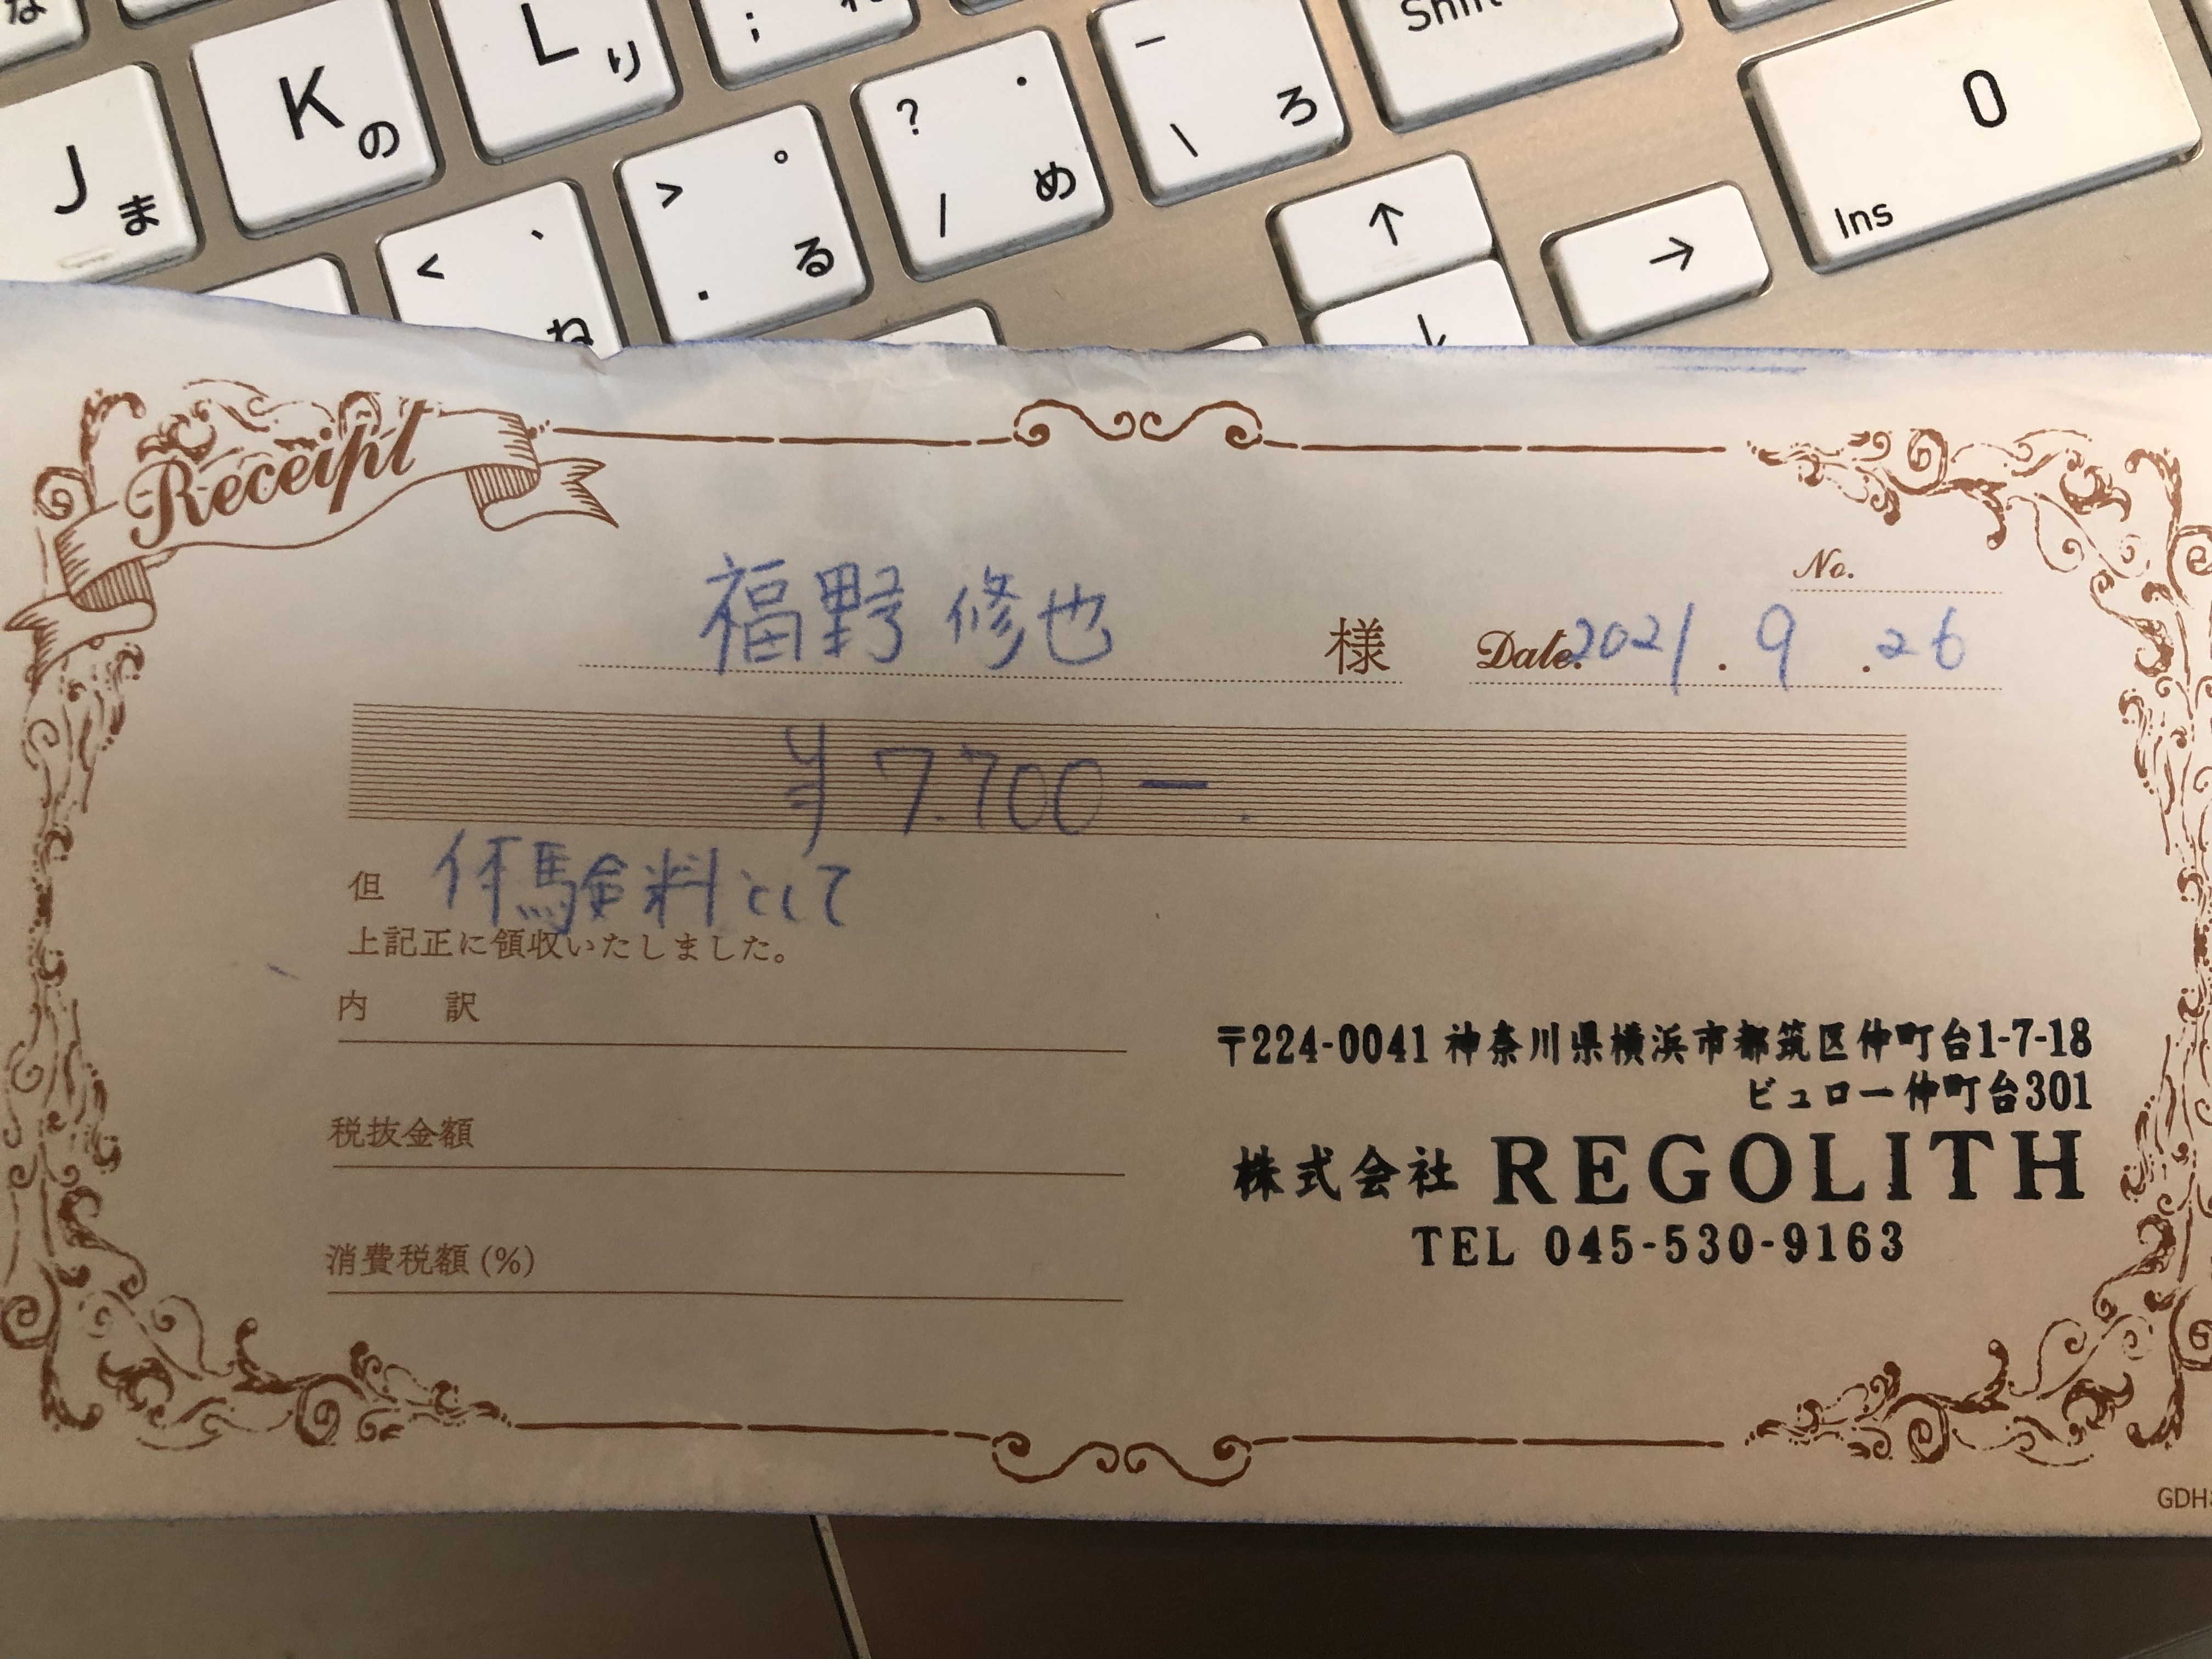 な
れ
Shift
J ま
K の
L り
;
< 、 ね
> 。 . る
? ・ / め
_ \ ろ
↑
→
↓
0 Ins
Receipt
No.
福野 修也 様 Date. 2021. 9. 26
¥7.700-
但 体験料として
上記正に領収いたしました。
内 訳
税抜金額
消費税額(%)
〒224-0041 神奈川県横浜市都筑区仲町台1-7-18
ビュロー仲町台301
株式会社 REGOLITH
TEL 045-530-9163